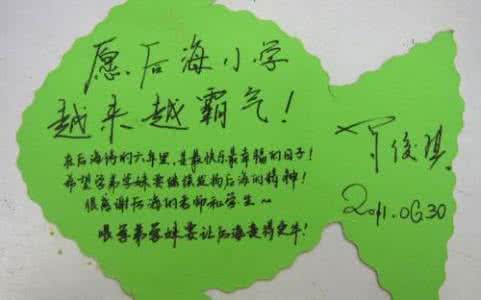 愿后海小学
越来越霸气!
在后海待的六年里,是最快乐最幸福的日子!
希望学弟学妹要继续发扬后海的精神!
很感谢后海的老师和学生~
嘿学弟学妹要让后海变得更牛!
俊琪
2011.06.30